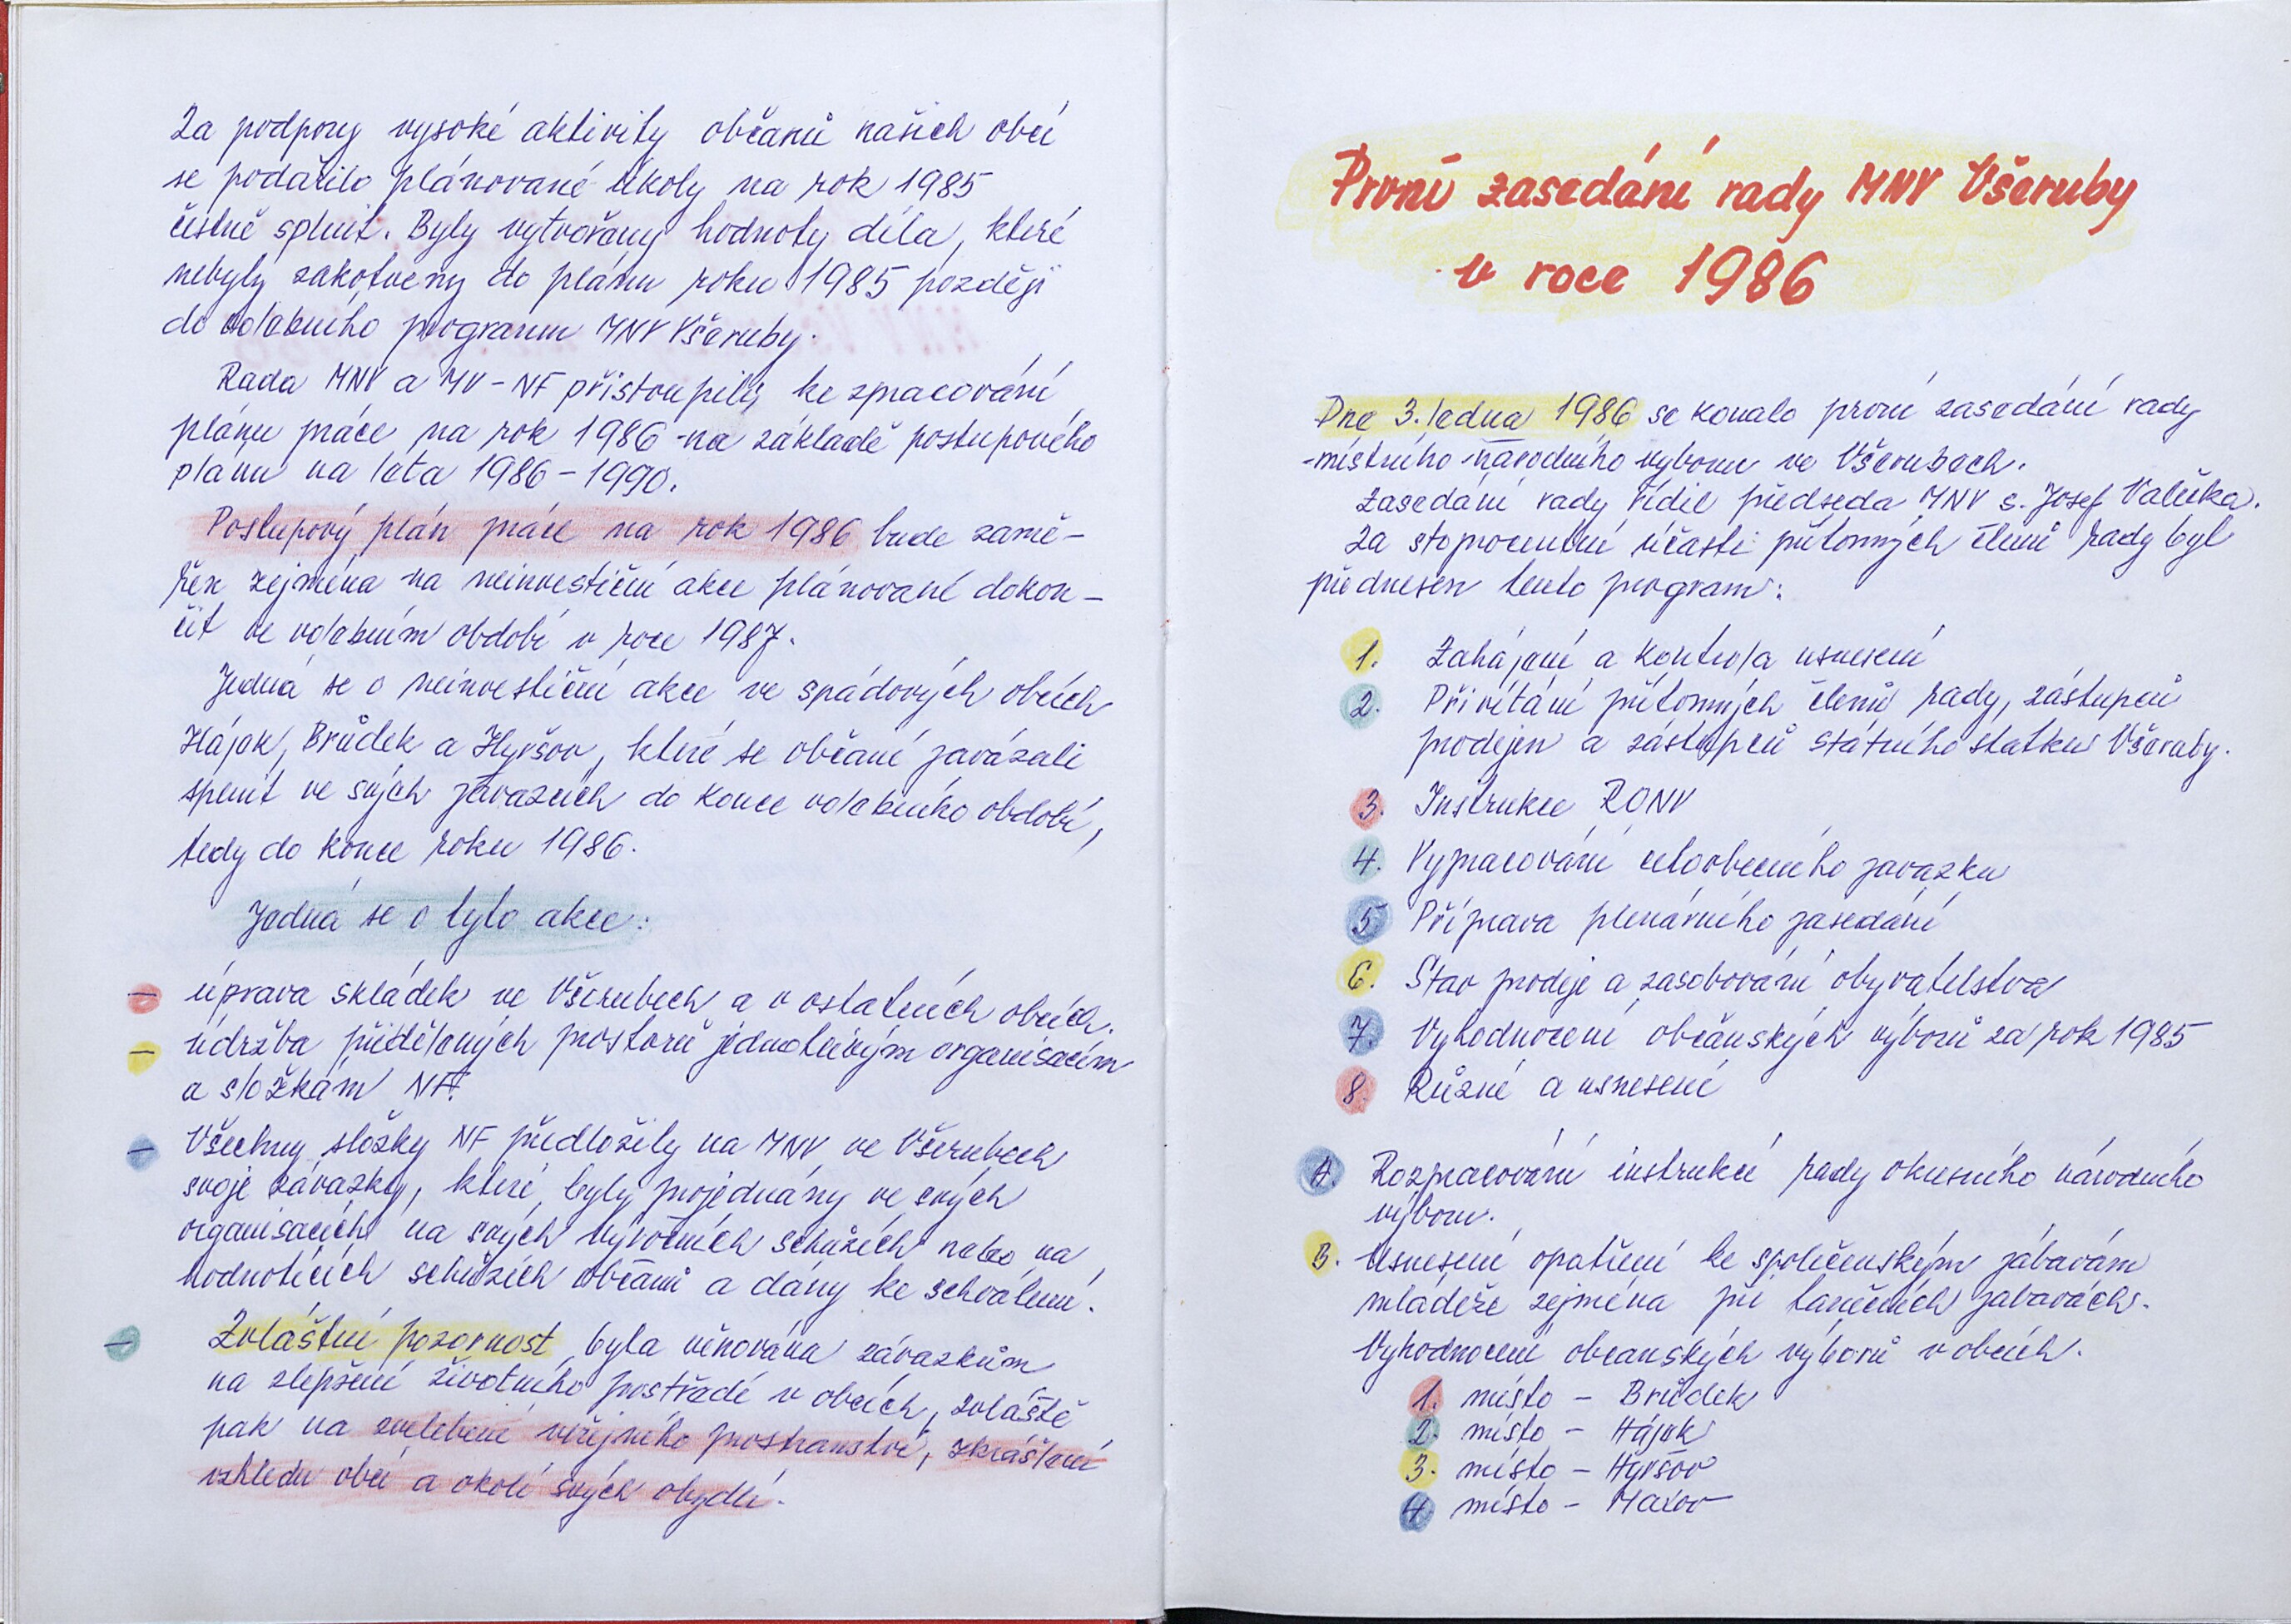 Za podpory vysoké aktivity občanů našich obcí
se podařilo plánované úkoly na rok 1985
čestně splnit. Byly vytvořeny hodnoty díla, které
nebyly zakotveny do plánu roku 1985 později
do volebního programu MNV Všeruby.
Rada MNV a MV-NF přistoupily ke zpracování
plánu práce na rok 1986 na základě postupového
plánu na léta 1986-1990.
Postupový plán práce na rok 1986 bude zamě-
řen zejména na neinvestiční akce plánované dokon-
čit ve volebním období v roce 1987.
Jedná se o neinvestiční akce ve spádových obcích
Hájek, Brůdek a Hyršov, které se občané zavázali
splnit ve svých závazcích do konce volebního období,
tedy do konce roku 1986.
Jedná se o tyto akce:
- úprava skládek ve Všerubech a v ostatních obcích.
- údržba přidělených prostorů jednotlivým organisacím
a složkám NF.
- Všechny složky NF předložily na MNV ve Všerubech
svoje závazky, které byly projednány ve svých
organisacích na svých výročních schůzích nebo na
hodnotících schůzích občanů a dány ke schválení.
- Zvláštní pozornost byla věnována závazkům
na zlepšení životního prostředí v obcích, zvláště
pak na zvelebení veřejného prostranství, zkrášlení
vzhledu obcí a okolí svých obydlí.
První zasedání rady MNV Všeruby
v roce 1986
Dne 3. ledna 1986 se konalo první zasedání rady
místního národního výboru ve Všerubech.
Zasedání rady řídil předseda MNV s. Josef Valečka.
Za stoprocentní účasti přítomných členů rady byl
přednesen tento program:
1. Zahájení a kontrola usnesení
2. Přivítání přítomných členů rady, zástupců
prodejen a zástupců státního statku Všeruby.
3. Instrukce RONV
4. Vypracování celoobecního závazku
5. Příprava plenárního zasedání
6. Stav prodeje a zásobování obyvatelstva
7. Vyhodnocení občanských výborů za rok 1985
8. Různé a usnesení
A. Rozpracování instrukcí rady okresního národního
výboru.
B. Usnesení opatření ke společenským zábavám
mládeže zejména při tanečních zábavách.
Vyhodnocení občanských výborů v obcích.
1. místo - Brůdek
2. místo - Hájek
3. místo - Hyršov
4. místo - Maxov